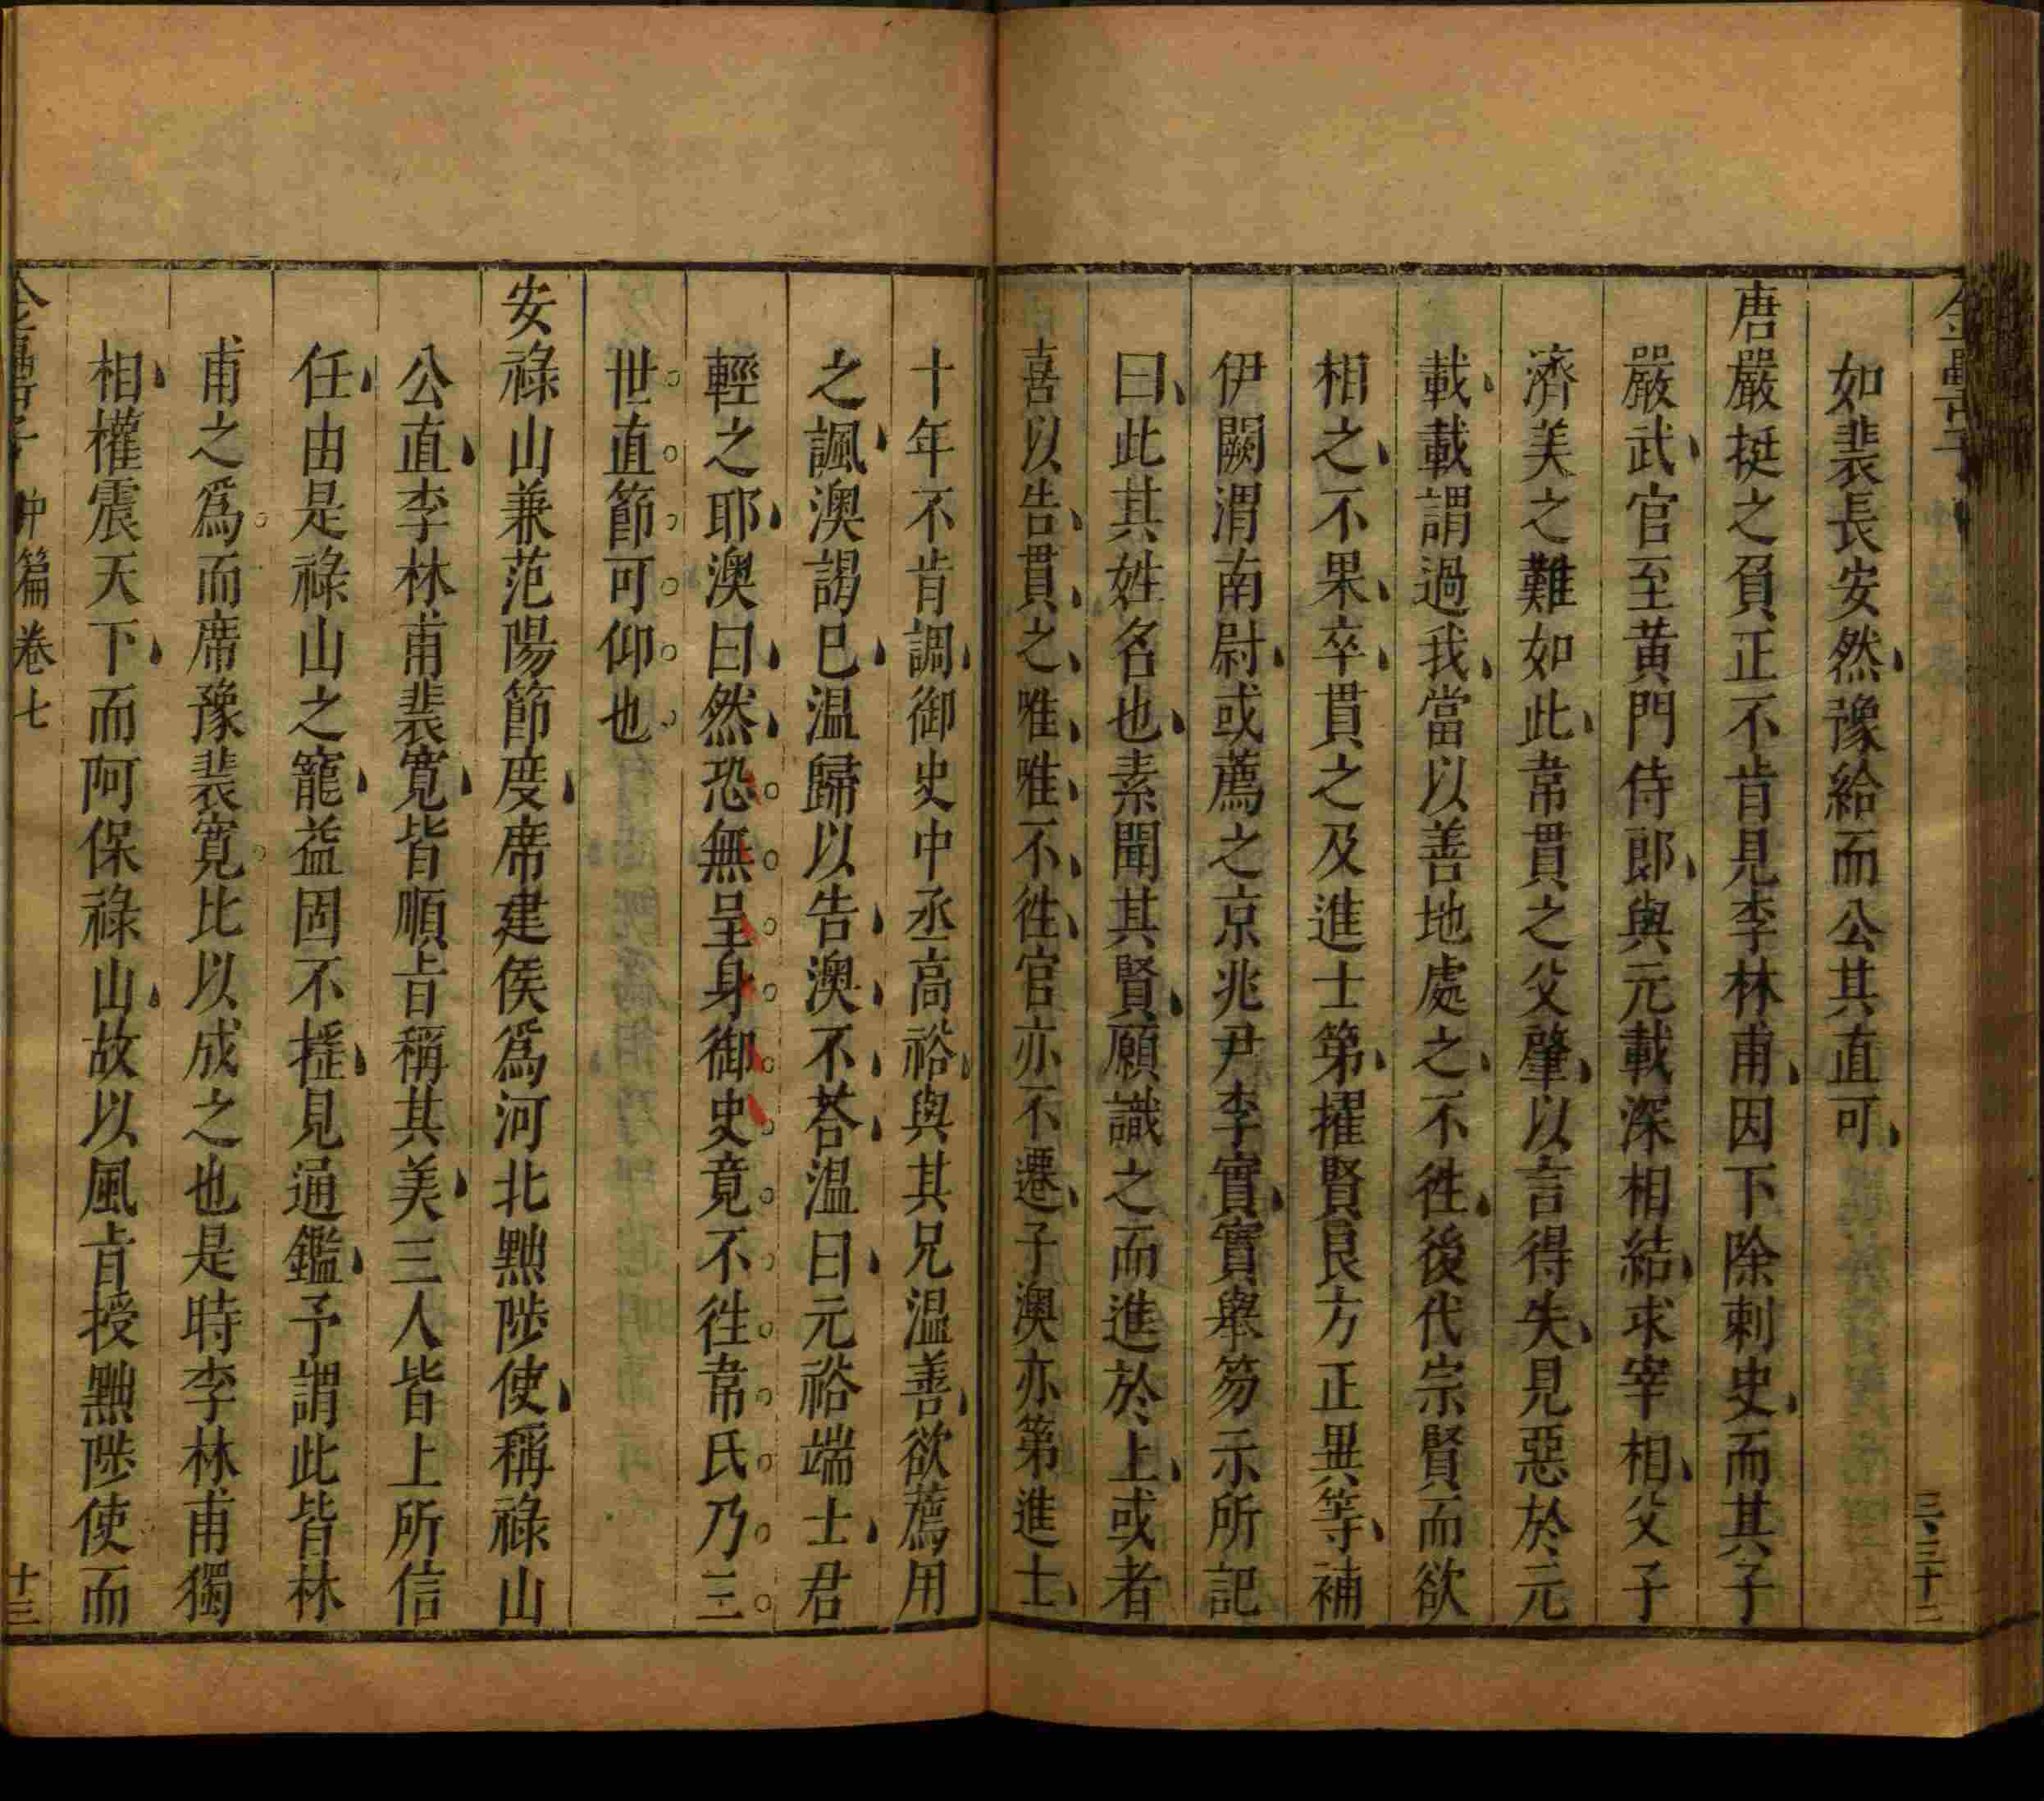 如裴長安然豫給而公其直可
唐嚴挺之負正不肯見李林甫因下除刺史而其子
嚴武官至黄門侍郎與元載深相結求宰相父子
濟美之難如此韋貫之父肇以言得失見惡於元
載載謂過我當以善地處之不徃後代宗賢而欲
相之不果卒貫之及進士第擢賢良方正異等補
伊闕渭南尉或薦之京兆尹李實實舉笏示所記
曰此其姓名也素聞其賢願識之而進於上或者
喜以告貫之唯唯不徃官亦不遷子澳亦第進士
十年不肯調御史中丞高裕與其兄温善欲薦用
之諷澳謁巳温歸以告澳不荅温曰元裕端士君
輕之耶澳曰然恐無呈身御史竟不徃韋氏乃三
世直節可仰也
安祿山兼范陽節度席建侯爲河北黜陟使稱祿山
公直李林甫裴寛皆順旨稱其美三人皆上所信
任由是祿山之寵益固不揺見通鑑予謂此皆林
甫之爲而席豫裴寛比以成之也是時李林甫獨
相權震天下而阿保祿山故以風旨授黜陟使而
中篇卷七
十三